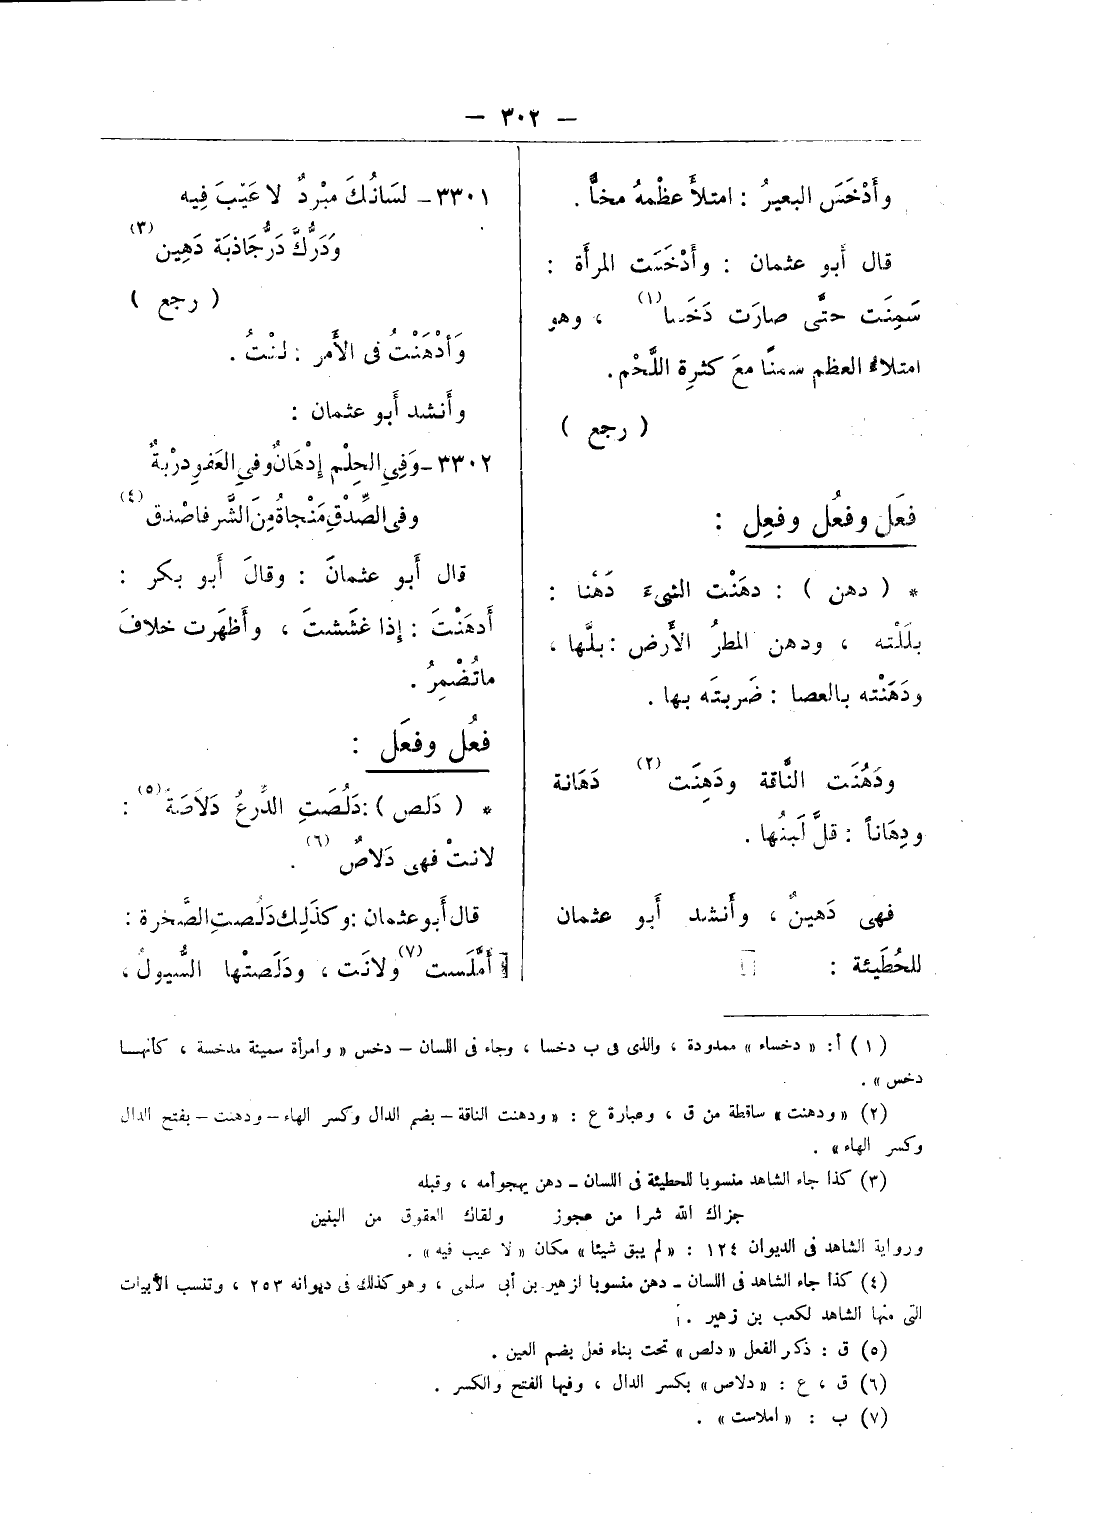 — ٣٠٢ —
وأَدْخَسَ البعيرُ : امتلأَ عظْمهُ مخاًّ .
قال أَبو عثمان : وأَدْخَسَت المرأَة :
سَمِنَت حتَّى صارَت دَخَسا (١) ، وهو
امتلاءُ العظم سمنًا معَ كثرةِ اللَّحْم .
( رجع )
فعَل وفعُل وفعِل :
* ( دهن ) : دهَنْت الشىءَ دَهْنا :
بلَلْته ، ودهن المطرُ الأَرض : بلَّها ،
ودَهَنْته بالعصا : ضَربتَه بها .
ودَهُنَت النَّاقة ودَهِنَت (٢) دَهَانة
ودِهَاناً : قلَّ لَبنُها .
فهى دَهينٌ ، وأَنشد أَبو عثمان
للحُطَيئة :
٣٣٠١ – لسَانُكَ مبْردٌ لا عَيْبَ فِيه
ودَرُّكَ دَرُّ جَاذبَة دَهِين (٣)
( رجع )
وَأَدْهَنْتُ فى الأَمر : لنْتُ .
وأَنشد أَبو عثمان :
٣٣٠٢ – وَفِى الحِلْم إِدْهَانٌ وفى العَفوِ درْبةٌ
وفى الصِّدْقِ مَنْجاةٌ مِنَ الشَّر فاصْدق (٤)
قال أَبو عثمانَ : وقالَ أَبو بكر :
أَدهَنْتَ : إِذا غشَشتَ ، وأَظهَرت خلافَ
ماتُضْمِرُ .
فعُل وفعَل :
* ( دَلص ) : دَلُصَتِ الدِّرعُ دَلاَصَةً (٥) :
لانتْ فهى دَلاصٌ (٦) .
قال أَبو عثمان : وكذَلِك دَلُصتِ الصَّخرة :
أَمَّلَست (٧) ولانَت ، ودَلَصتْها السُّيولُ ،
(١) أ : « دخساء » ممدودة ، والذى فى ب دخسا ، وجاء فى اللسان – دخس « وامرأة سمينة مدخسة ، كأنهــا
دخس » .
(٢) « ودهنت » ساقطة من ق ، وعبارة ع : « ودهنت الناقة – بضم الدال وكسر الهاء – ودهنت – بفتح الدال
وكسر الهاء » .
(٣) كذا جاء الشاهد منسوبا للحطيئة فى اللسان – دهن يهجو أمه ، وقبله
جزاك الله شرا من عجوز ولقاك العقوق من البنين
ورواية الشاهد فى الديوان ١٢٤ : « لم يبق شيئا » مكان « لا عيب فيه » .
(٤) كذا جاء الشاهد فى اللسان – دهن منسوبا لزهير بن أبى سلمى ، وهو كذلك فى ديوانه ٢٥٣ ، وتنسب الأبيات
التى منها الشاهد لكعب بن زهير .
(٥) ق : ذكر الفعل « دلص » تحت بناء فعل بضم العين .
(٦) ق ، ع : « دلاص » بكسر الدال ، وفيها الفتح والكسر .
(٧) ب : « املاست » .